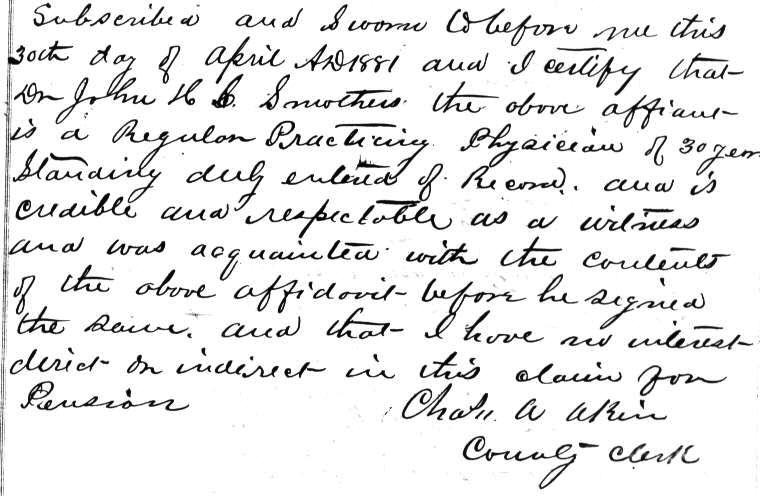 Subscribed and Sworn to before me this
30th day of April AD 1881 and I certify that
Dr John H C Smothers the above affiant
is a Regular Practicing Physician of 30 years
Standing duly entered of Record. and is
credible and respectable as a witness
and was acquainted with the contents
of the above affidavit before he signed
the same. and that I have no interest
direct or indirect in this claim for
Pension Chas. A Akin
County Clerk